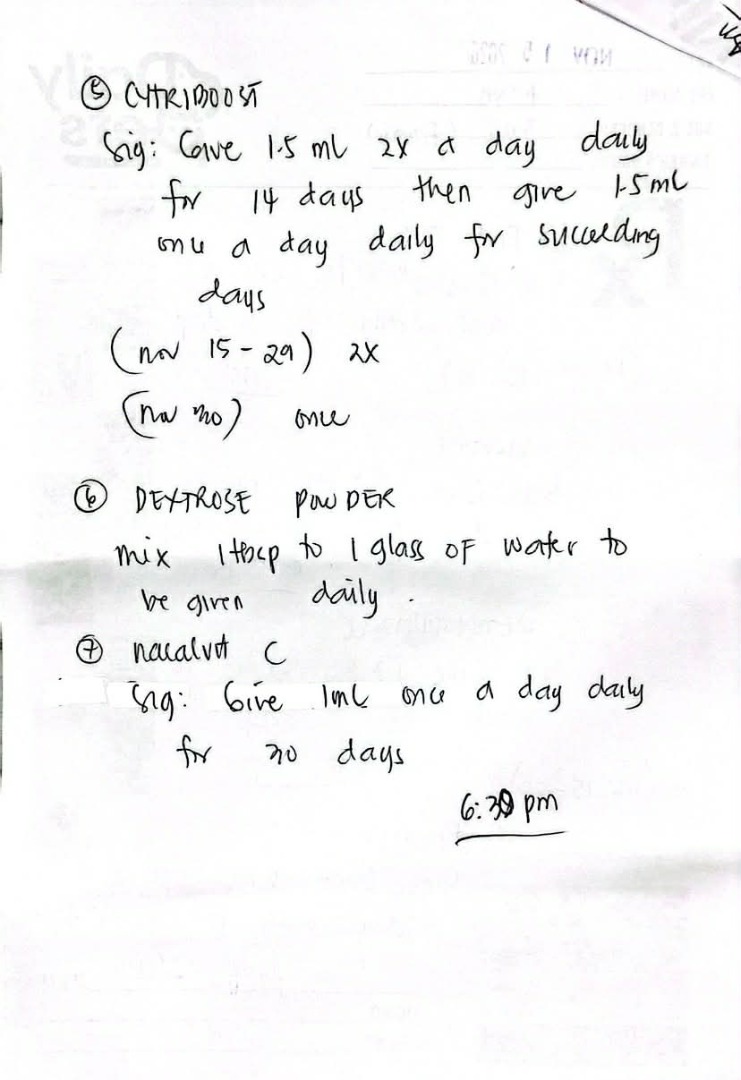 ⑤ CYTRIBOOST
Sig: Give 1.5 ml 2x a day daily
for 14 days then give 1.5 ml
once a day daily for succeeding
days
(nov 15 - 29) 2x
(nov 30) once
⑥ DEXTROSE POWDER
mix 1 tbsp to 1 glass of water to
be given daily.
⑦ nacalvit C
Sig: Give 1ml once a day daily
for 30 days
6:30 pm